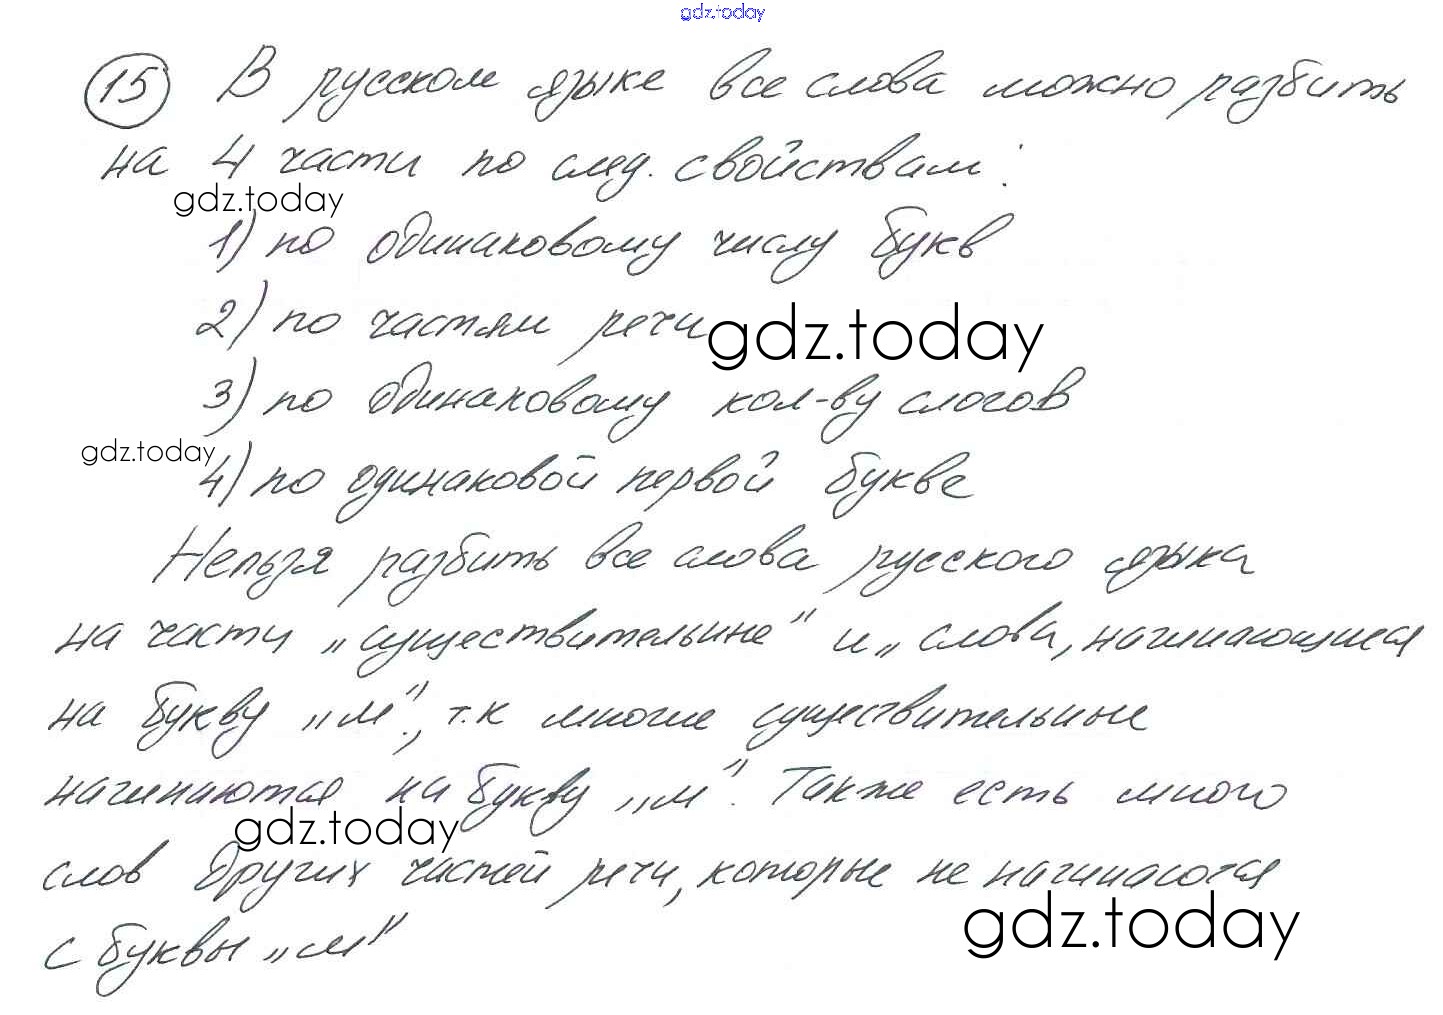 gdz.today
15 В русском языке все слова можно разбить
на 4 части по след. свойствам:
gdz.today
1) по одинаковому числу букв
2) по частям речи
gdz.today
3) по одинаковому кол-ву слогов
gdz.today
4) по одинаковой первой букве
Нельзя разбить все слова русского языка
на части „существительные" и „слова, начинающиеся
на букву „м", т.к многие существительные
начинаются на букву „м". Также есть много
gdz.today
слов других частей речи, которые не начинаются
gdz.today
с буквы „м"